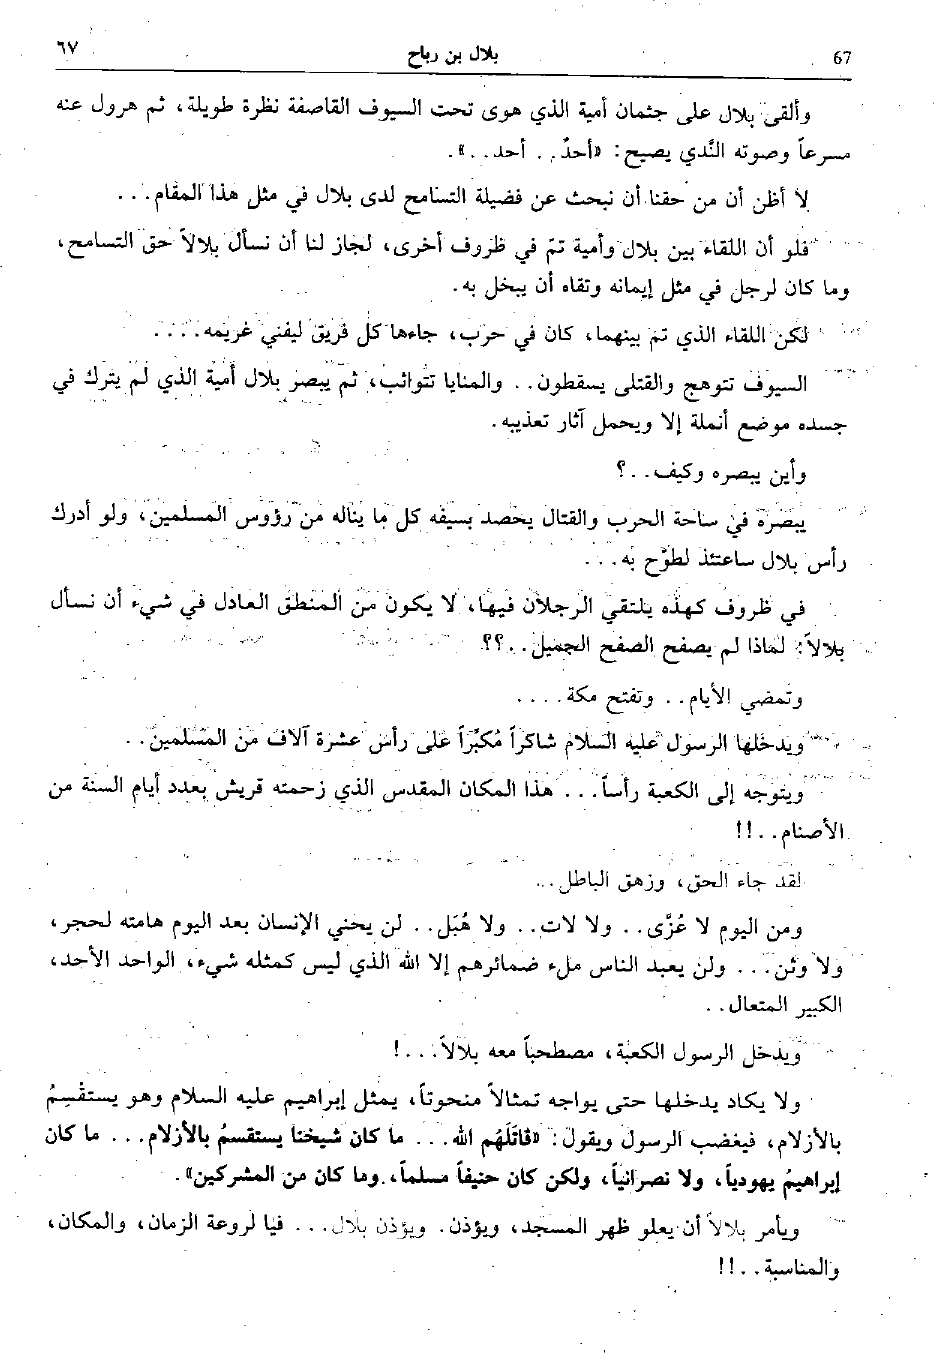 67 بلال بن رباح ٦٧
وألقى بلال على جثمان أمية الذي هوى تحت السيوف القاصفة نظرة طويلة، ثم هرول عنه
مسرعاً وصوته النَّدي يصيح: «أحدٌ.. أحد..».
لا أظن أن من حقنا أن نبحث عن فضيلة التسامح لدى بلال في مثل هذا المقام...
فلو أن اللقاء بين بلال وأمية تمّ في ظروف أخرى، لجاز لنا أن نسأل بلالاً حق التسامح،
وما كان لرجل في مثل إيمانه وتقاه أن يبخل به.
لكن اللقاء الذي تم بينهما، كان في حرب، جاءها كل فريق ليفني غريمه....
السيوف تتوهج والقتلى يسقطون.. والمنايا تتواثب، ثمّ يبصر بلال أمية الذي لم يترك في
جسده موضع أنملة إلا ويحمل آثار تعذيبه.
وأين يبصره وكيف..؟
يبصره في ساحة الحرب والقتال يحصد بسيفه كل ما يناله من رؤوس المسلمين، ولو أدرك
رأس بلال ساعتئذ لطوَّح به...
في ظروف كهذه يلتقي الرجلان فيها، لا يكون من المنطق العادل في شيء أن نسأل
بلالاً: لماذا لم يصفح الصفح الجميل..؟؟
وتمضي الأيام.. وتفتح مكة....
ويدخلها الرسول عليه السلام شاكراً مُكبِّراً على رأس عشرة آلاف من المسلمين..
ويتوجه إلى الكعبة رأساً... هذا المكان المقدس الذي زحمته قريش بعدد أيام السنة من
الأصنام..!!
لقد جاء الحق، وزهق الباطل...
ومن اليوم لا عُزَّى.. ولا لات.. ولا هُبَل.. لن يحني الإنسان بعد اليوم هامته لحجر،
ولا وثن... ولن يعبد الناس ملء ضمائرهم إلا الله الذي ليس كمثله شيء، الواحد الأحد،
الكبير المتعال..
ويدخل الرسول الكعبة، مصطحباً معه بلالاً...!
ولا يكاد يدخلها حتى يواجه تمثالاً منحوتاً، يمثل إبراهيم عليه السلام وهو يستقْسِمُ
بالأزلام، فيغضب الرسول ويقول: «قَاتَلَهُم الله... ما كان شيخنا يستقسمُ بالأزلام... ما كان
إبراهيمُ يهودياً، ولا نصرانياً، ولكن كان حنيفاً مسلماً، وما كان من المشركين».
ويأمر بلالاً أن يعلو ظهر المسجد، ويؤذن. ويؤذن بلال... فيا لروعة الزمان، والمكان،
والمناسبة..!!